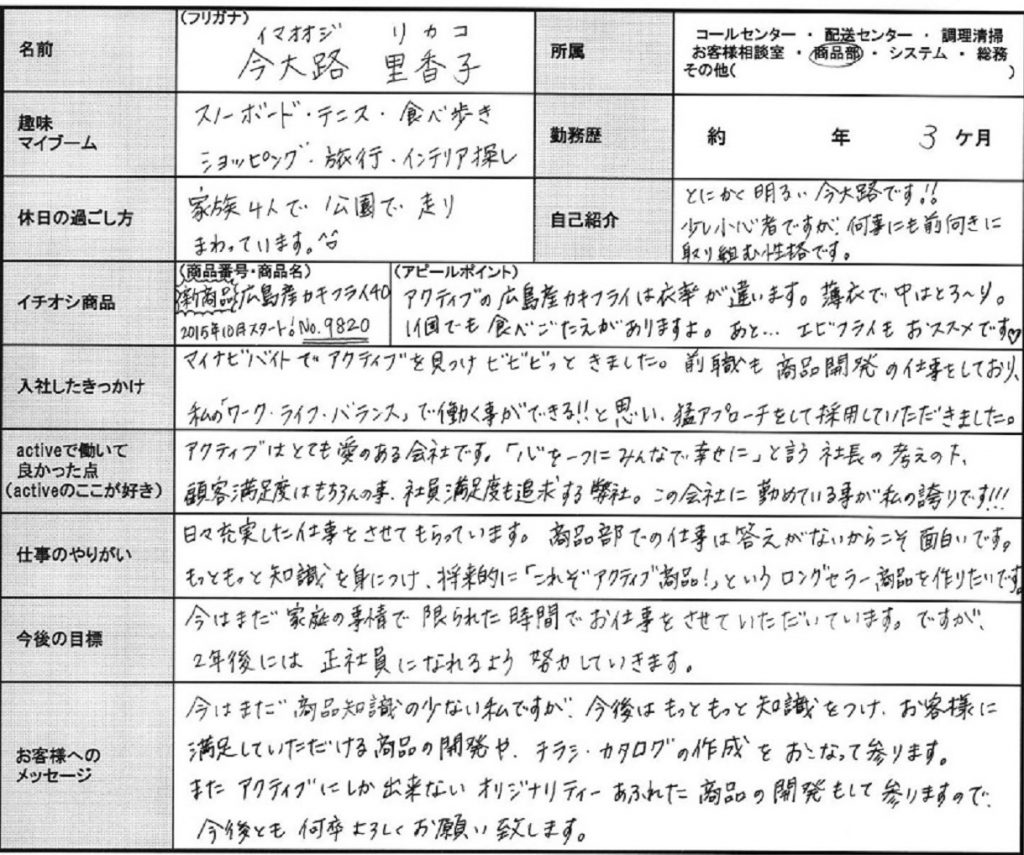 (フリガナ)
名前
イマオオジ リカコ
今大路 里香子
所属
コールセンター ・ 配送センター ・ 調理清掃
お客様相談室 ・ 商品部 ・ システム ・ 総務
その他( )
趣味
マイブーム
スノーボード・テニス・食べ歩き
ショッピング・旅行・インテリア探し
勤務歴
約 年 3 ケ月
休日の過ごし方
家族4人で 公園で 走り
まわっています。^^
自己紹介
とにかく明るい今大路です!!
少し小心者ですが、何事にも前向きに
取り組む性格です。
イチオシ商品
(商品番号・商品名)
新商品 広島産カキフライ40
2015年10月スタート! No.9820
(アピールポイント)
アクティブの広島産カキフライは衣率が違います。薄衣で中はとろ~り。
1個でも食べごたえがありますよ。あと… エビフライもおススメです♡
入社したきっかけ
マイナビバイトでアクティブを見つけビビビっときました。前職も商品開発の仕事をしており、
私の「ワーク・ライフ・バランス」で働く事ができる!!と思い、猛アプローチをして採用していただきました。
activeで働いて
良かった点
(activeのここが好き)
アクティブはとても愛のある会社です。「心を一つにみんなで幸せに」と言う社長の考えの下、
顧客満足度はもちろんの事、社員満足度も追求する弊社。この会社に勤めている事が私の誇りです!!!
仕事のやりがい
日々充実した仕事をさせてもらっています。商品部での仕事は答えがないからこそ面白いです。
もっともっと知識を身につけ、将来的に「これぞアクティブ商品!」というロングセラー商品を作りたいです。
今後の目標
今はまだ家庭の事情で限られた時間でお仕事をさせていただいています。ですが、
2年後には正社員になれるよう努力していきます。
お客様への
メッセージ
今はまだ商品知識の少ない私ですが、今後はもっともっと知識をつけ、お客様に
満足していただける商品の開発や、チラシ・カタログの作成をおこなって参ります。
またアクティブにしか出来ないオリジナリティーあふれた商品の開発もして参りますので、
今後とも何卒よろしくお願い致します。